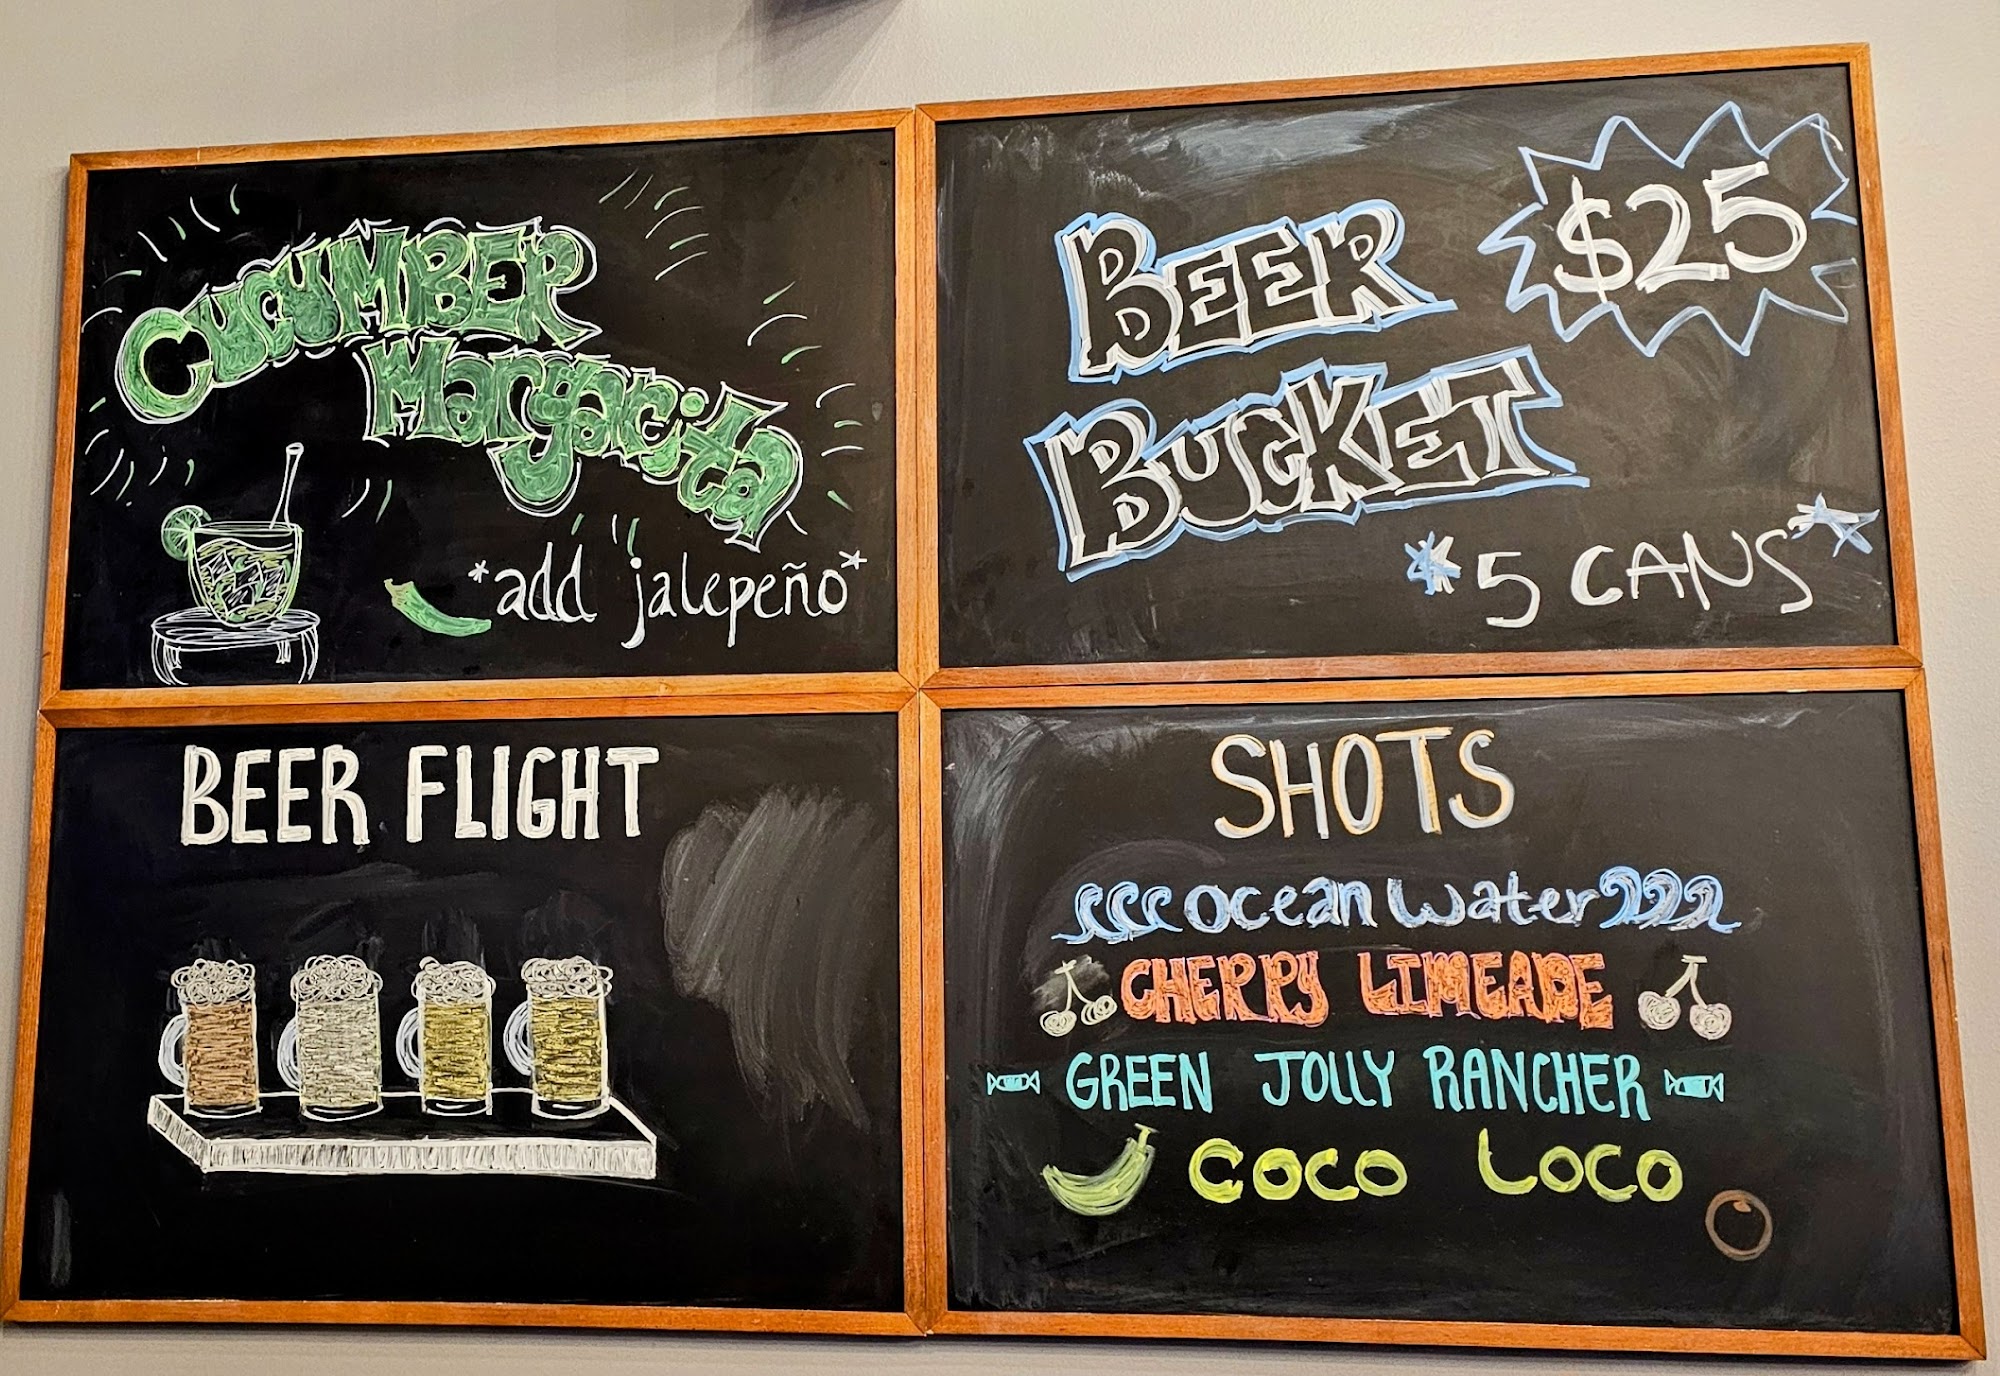 CUCUMBER
Margarita
*add jalepeño*
BEER
BUCKET
$25
*5 CANS*
BEER FLIGHT
SHOTS
ocean water
CHERRY LIMEADE
GREEN JOLLY RANCHER
COCO LOCO